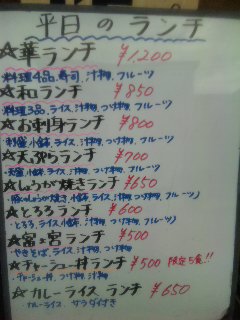 平日のランチ
☆華ランチ ¥1,200
料理4品、寿司、汁物、フルーツ
☆和ランチ ¥850
料理3品、ライス、汁物、つけ物、フルーツ
☆お刺身ランチ ¥800
刺盛、小鉢、ライス、汁物、つけ物、フルーツ
☆天ぷらランチ ¥700
天盛、小鉢、ライス、汁物、つけ物、フルーツ
☆しょうが焼きランチ ¥650
豚しょうが焼き、小鉢、ライス、汁物、つけ物、フルーツ
☆とろろランチ ¥600
とろろ、小鉢、ライス、汁物、つけ物、フルーツ
☆富士宮ランチ ¥500
やきそば、ライス、汁物、つけ物
☆チャーシュー丼ランチ ¥500 限定5食!!
チャーシュー丼、つけ物、汁物
☆カレーライスランチ ¥650
カレーライス サラダ付き